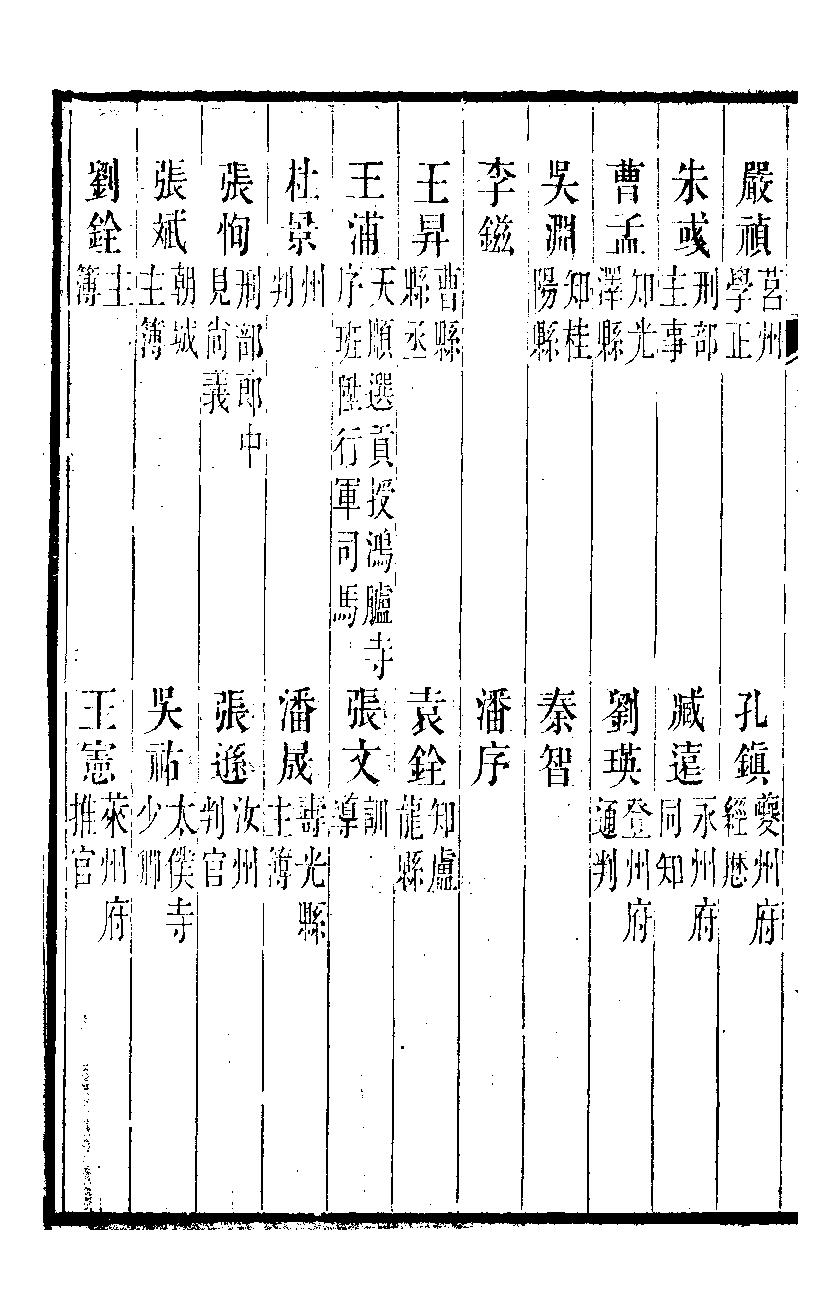 嚴禎莒州學正　孔鎮夔州府經歷
朱彧刑部主事　臧遠永州府同知
曹孟知光澤縣　劉瑛登州府通判
吳淵知桂陽縣　秦智
李鎡　潘序
王昇曹縣縣丞　袁銓知盧龍縣
王浦天順選貢授鴻臚寺序班陞行軍司馬　張文訓導
杜景州判　潘晟壽光縣主簿
張恂刑部郎中見尚義　張遜汝州判官
張斌朝城主簿　吳祐太僕寺少卿
劉銓主簿　王憲萊州府推官